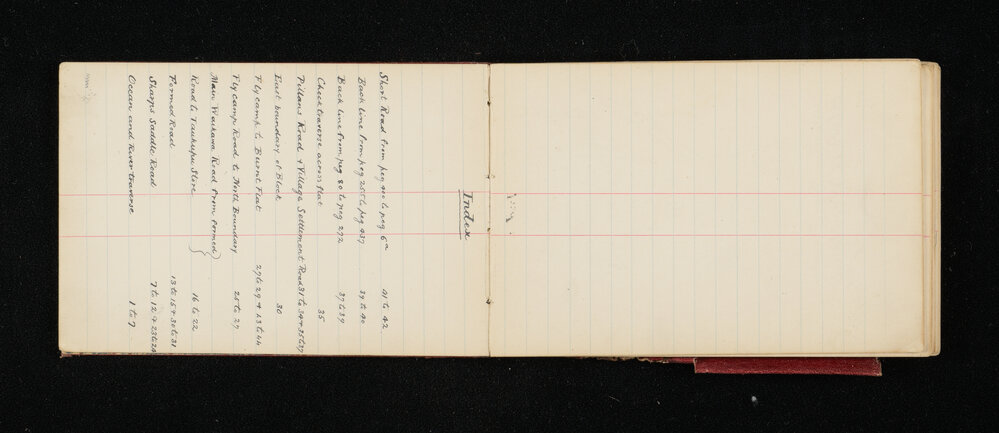 Index
Short Road from peg 400 to peg 6a 41 to 42
Back line from peg 255 to peg 437 39 to 40
Back line from peg 80 to peg 272 37 to 39
Check traverse across flat 35
Pillans Road & Village Settlement Road 31 to 34 & 35 to 37
East boundary of Block 30
Fly camp to Burnt Flat 27 to 29 & 43 to 44
Fly camp Road to North Boundary 25 to 27
Main Waikawa Road from formed
Road to Taukupu Store 16 to 22
Formed Road 13 to 15 & 30 to 31
Sharps Saddle Road 7 to 12 & 23 to 24
Ocean and River traverse 1 to 7